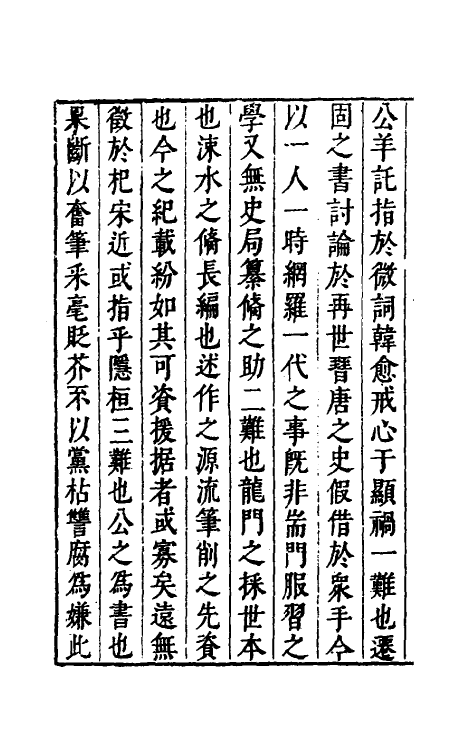 公羊託指於微詞韓愈戒心于顯禍一難也遷
固之書討論於再世晉唐之史假借於衆手今
以一人一時網羅一代之事旣非耑門服習之
學又無史局纂脩之助二難也龍門之採世本
也涑水之脩長編也述作之源流筆削之先資
也今之紀載紛如其可資援据者或寡矣遠無
徵於杞宋近或指乎隱桓三難也公之為書也
果斷以奮筆釆毫貶芥不以黨枯讐腐為嫌此